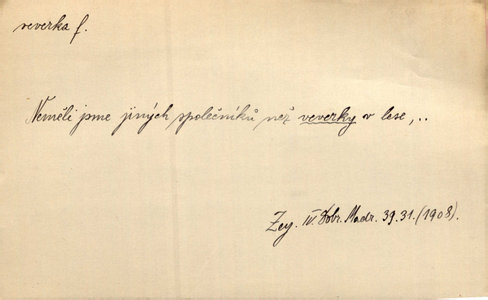 veverka f.
Neměli jsme jiných společníků než veverky v lese,..
Zey. IV. Dobr. Madr. 39.31. (1908).